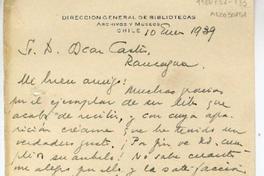 DIRECCION GENERAL DE BIBLIOTECAS
ARCHIVOS Y MUSEOS
CHILE
10 Enero 1939
Sr. D. Oscar Castro
Rancagua
Mi buen amigo: Muchas gracias
por el ejemplar de su libro que
acabo de recibir, y con cuya apa-
rición créame que he tenido un
verdadero gusto. ¡Por fin ve Ud. cum-
plido su anhelo! No sabe cuanto
me alegro por ello, y la satisfacción